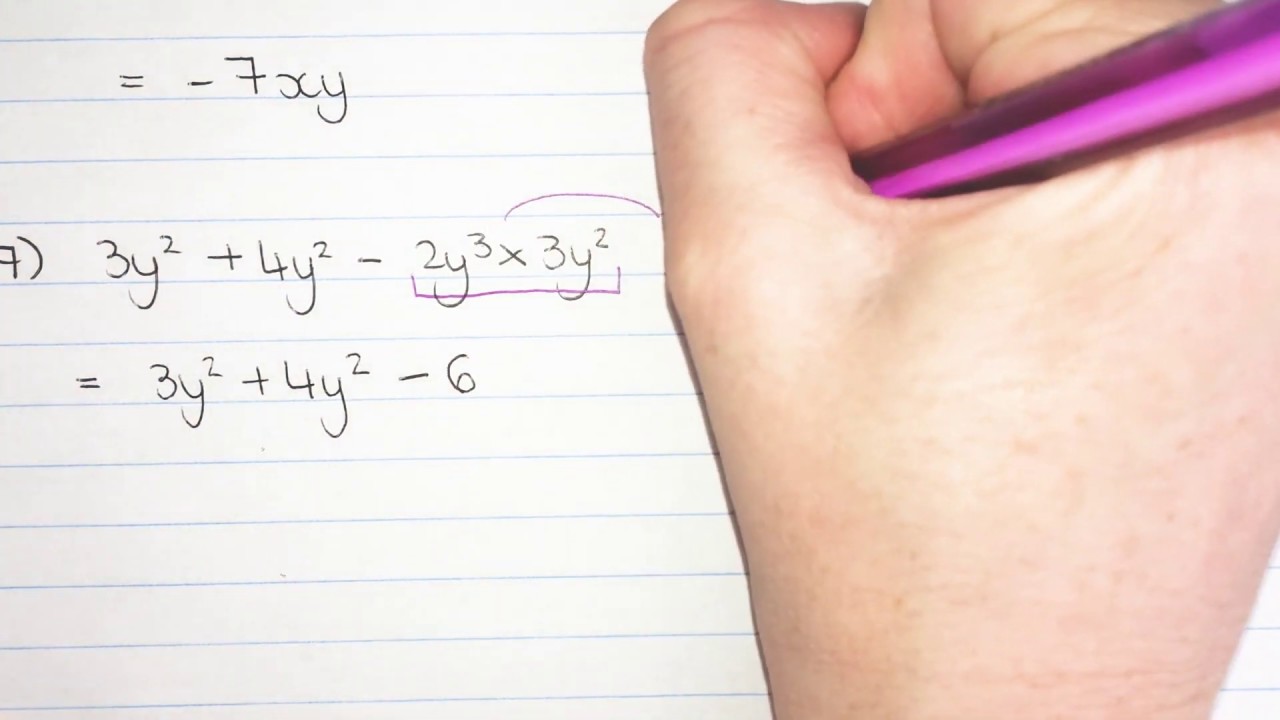 = -7xy
7) 3y² + 4y² - 2y³ × 3y²
= 3y² + 4y² - 6